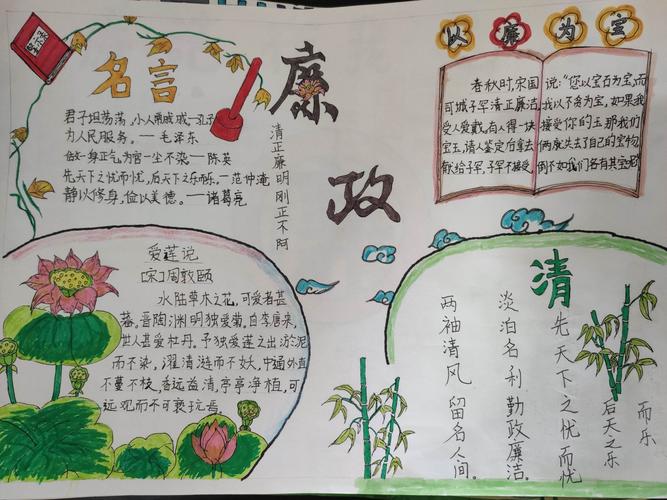 名言
君子坦荡荡，小人常戚戚—孔子
为人民服务。— 毛泽东
做一身正气，为官一尘不染—陈英
先天下之忧而忧，后天下之乐而乐。—范仲淹
静以修身，俭以养德。—诸葛亮
廉政
清正廉明刚正不阿
以廉为宝
春秋时，宋国
司城子罕清正廉洁，
受人爱戴。有人得一块
宝玉，请人鉴定后拿去
献给子罕，子罕不接受，
说："您以宝石为宝，而
我以不贪为宝，如果我
接受你的玉，那我们
俩就失去了自己的宝物，
倒不如我们各有其宝呢
爱莲说
[宋]周敦颐
水陆草木之花，可爱者甚
蕃。晋陶渊明独爱菊。自李唐来，
世人甚爱牡丹。予独爱莲之出淤泥
而不染，濯清涟而不妖，中通外直
不蔓不枝，香远益清，亭亭净植，可
远观而不可亵玩焉。
清
先天下之忧而忧
后天之乐
而乐
淡泊名利，勤政廉洁。
两袖清风，留名人间。